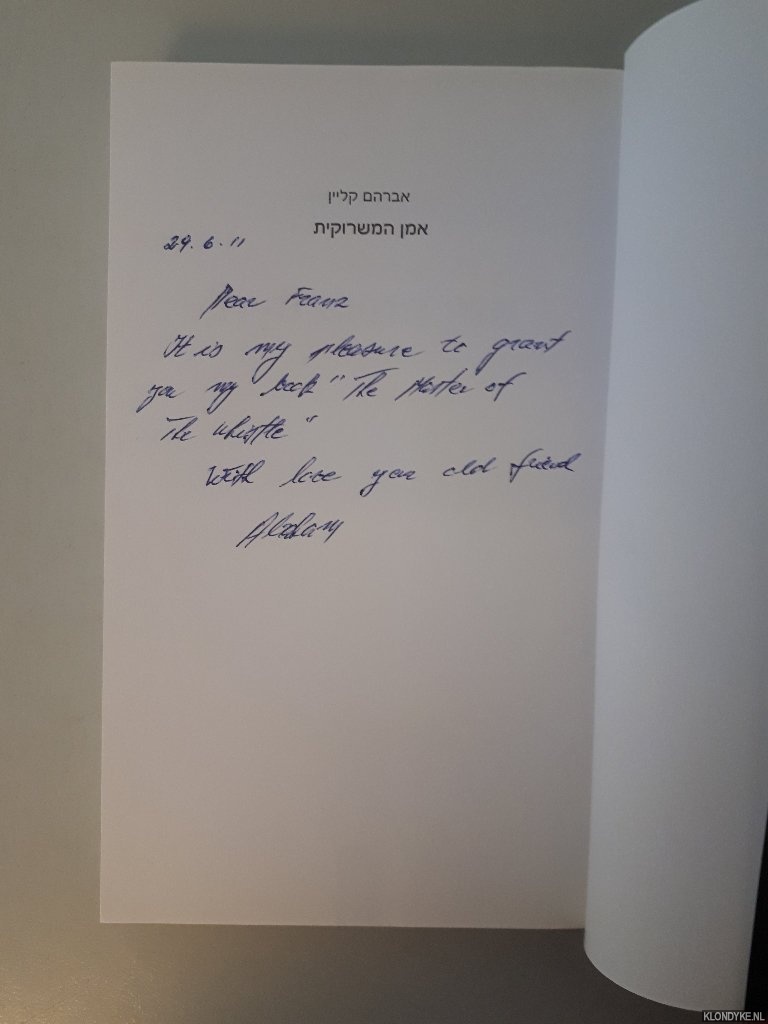 אברהם קליין
אמן המשרוקית
29.6.11
Dear Franz
It is my pleasure to grant
you my book "The Master of
The whistle"
With love your old friend
Abraham
KLONDYKE.NL